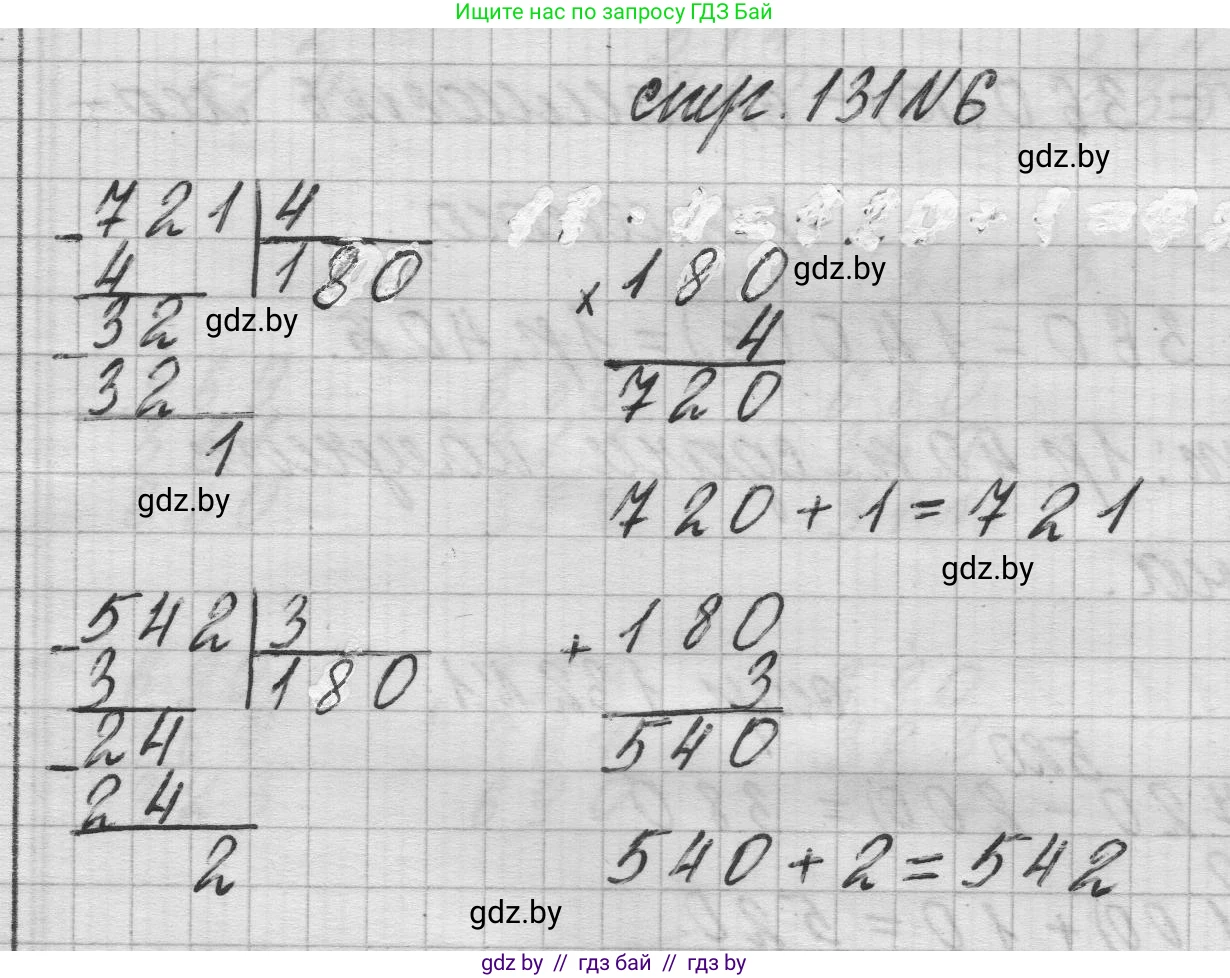 Ищите нас по запросу ГДЗ Бай
стр. 131 N 6
gdz.by
- 721 | 4
4 180
gdz.by
- 32
32
1
gdz.by
× 180
gdz.by
4
720
720 + 1 = 721
gdz.by
- 542 | 3
3 180
- 24
24
2
+ 180
3
540
540 + 2 = 542
gdz.by
gdz by // гдз бай // гдз by